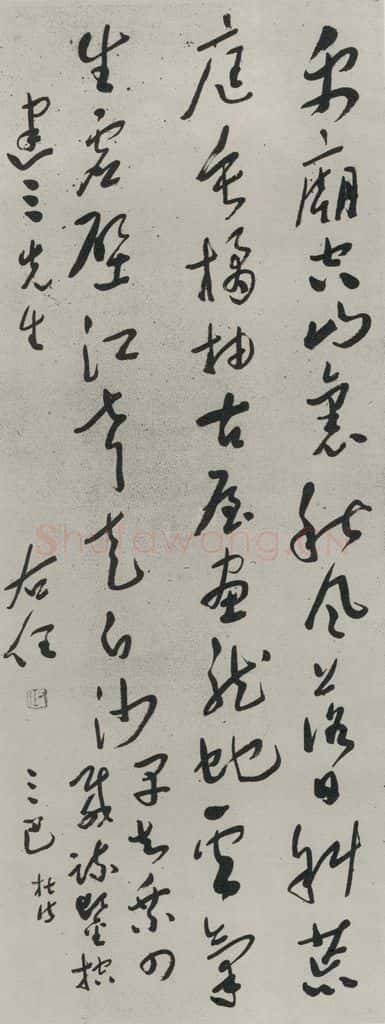 禹廟空山裏秋風落日斜荒
庭垂橘柚古屋畫龍蛇雲氣
生虛壁江聲走白沙
早知乘四
載疏鑿控
三巴 杜詩
三先生
右任
Shufawang.CN